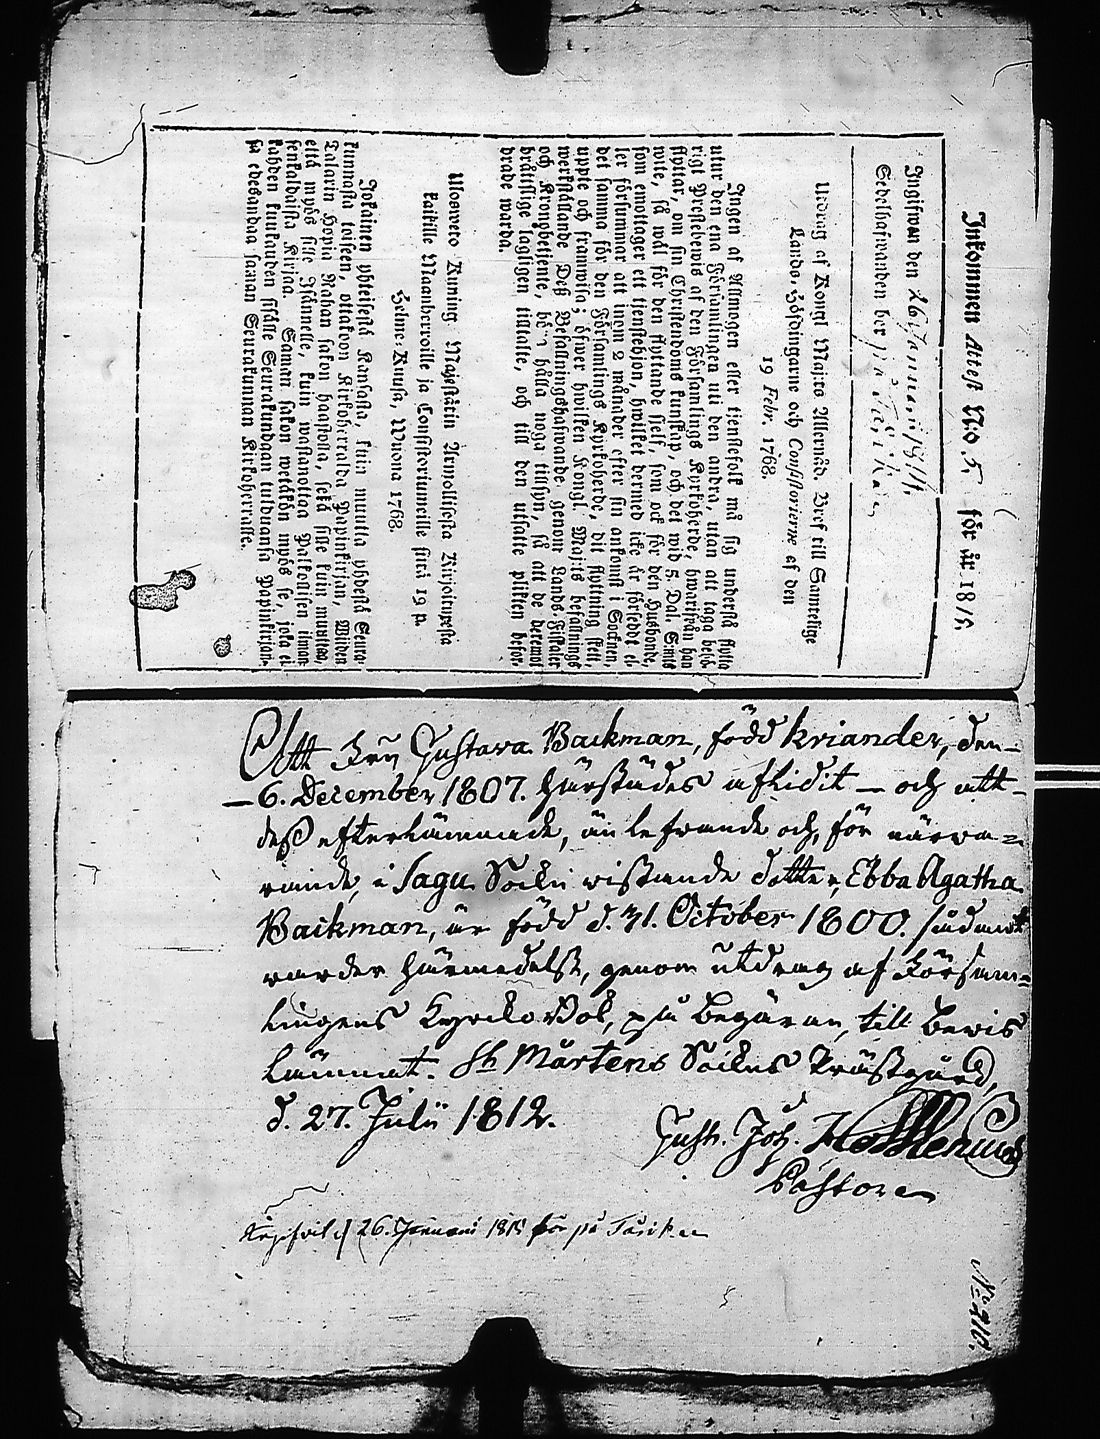 Inkommen Attest N:o 5 för år 1815.
Ingifwen den 26 Januarii 1815.
Sedelhafwanden bor på
Utdrag af Kongl. Maj:ts Allernåd. Bref till Samtelige
Lands-Höfdingarne och Consistorierne af den
19 Febr. 1768.
Ingen af Allmogen eller tjenstefolk må sig understå flytta
utur den ena Församlingen uti den andra, utan att taga behö-
rigt Prestebewis af den Församlings Kyrkoherde, hwarifrån han
flyttar, om sin Christendoms kunskap, och det wid 5. Dal. S:mts
wite, så wäl för den flyttande sjelf, som ock för den Husbonde,
som emottager ett tjenstehjon, hwilket dermed icke är försedt el-
ler försummar att inom 2 månader efter sin ankomst i Socknen,
det samma för den Församlings Kyrkoherde, dit flyttning skett,
uppte och framwisa; öfwer hwilken Kongl. Maj:ts befallnings
werkställande Deß Befallningshafwande, genom Lands-Fiskaler
och Kronobetjente, bö-a hålla noga tillsyn, så att de deremot
bråtslige lagligen tilltalte, och till den utsatte plikten beför-
drade warda.
Ulosweto Kuning. Majestätin Armollisesta Kirjoituxesta
kaikille Maanherroille ja Consistoriumeille siitä 19 p.
Helme-Kuusa, Wuona 1768.
Jokainen yhteisestä Kansasta, kuin muutta yhdestä Seura-
kunnasta toiseen, ottakoon Kirkoherralda Papinkirjan, Wiiden
Talarin Hopia Rahan sakon haastolla, sekä sille kuin muuttaa,
että myös sille Isännelle, kuin wastanottaa Palkollisen ilman
senkaldaista Kirjaa. Saman sakon wetäkön myös se, joka ei
kahden kuukauden sisälle Seurakundaan tulduansa Papinkirjan-
sa edesandaa saman Seurakunnan Kirkoherralle.
Att Fru Gustava Backman, född Kriander, den
6. December 1807. härstädes aflidit – och att
deß efterlämnade, än lefwande och, för närwa-
rande, i Sagu Sockn wistande dotter, Ebba Agatha
Backman, är född d. 31. October 1800. sådant
warder härmedelst, genom utdrag af Församl-
lingens Kyrcko Bok, på begäran, till bewis
lämnat. St Mårtens Sockns Prästgård,
d. 27. Julii 1812.
Gust. Joh.
Pastor
Ingifvit d 26. Januari 1815 bor på
N:o 216.